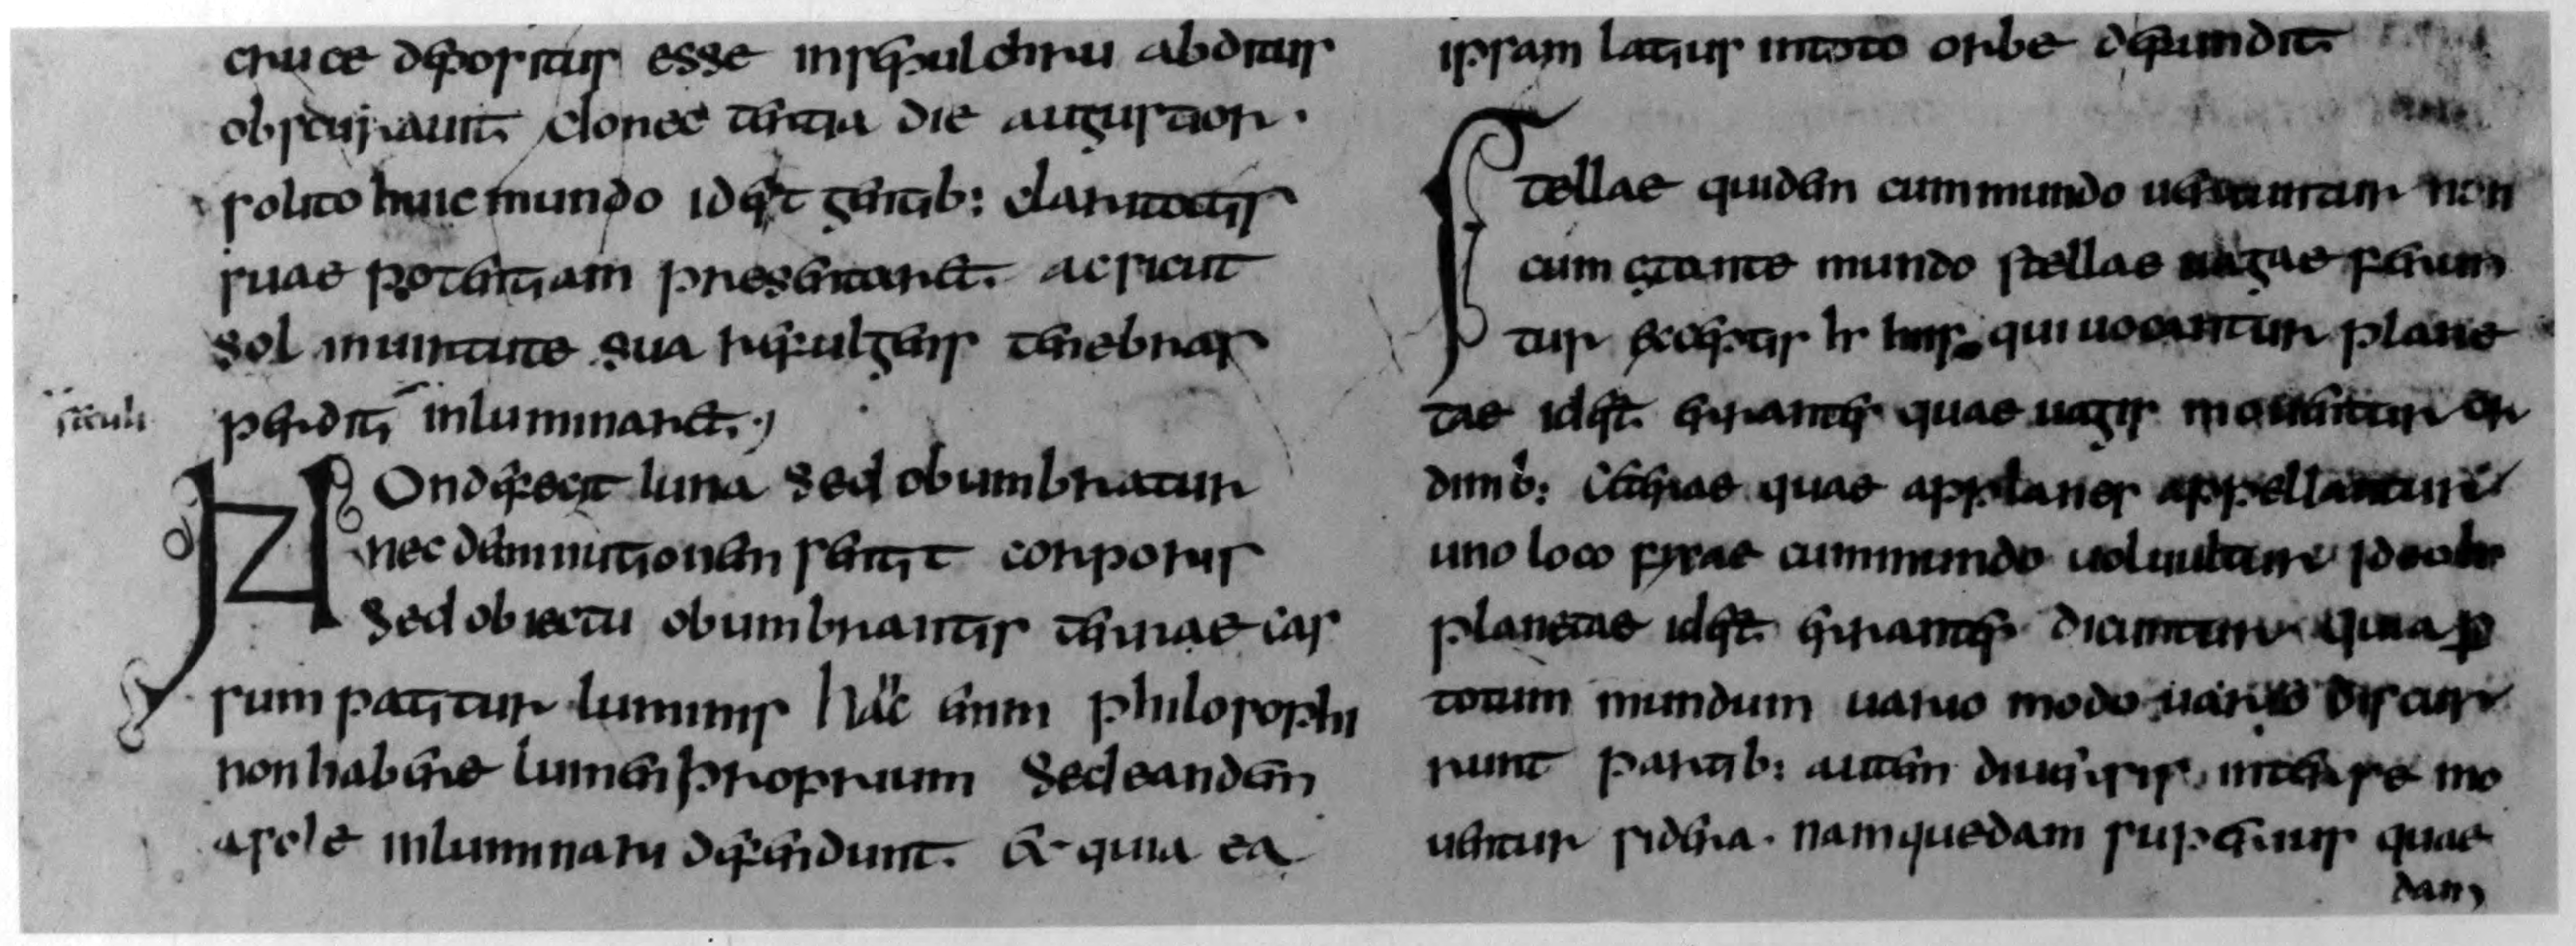 cruce depositus esse insepulchru abditus
obscurauit donec tertia die augustior.
solito huic mundo id est gentib: claritatis
suae potentiam presentaret. ac sicut
sol inuirtute sua refulgens tenebras
perdit inluminaret.
seculi
Non defecit luna sed obumbratur
nec deminutionem sentit corporis
sed obiectu obumbrantis terrae cas
sum patitur luminis hac enim philosophi
non habere lumen proprium sed eandem
a sole inluminari defendunt. & quia ea
ipsam latius in toto orbe defundit
Stellae quidem cum mundo uersantur non
cum stante mundo stellae uagae ferun
tur exceptis hr his qui uocantur plane
tae id est. errantes quae uagis mouentur or
dinib: ceterae quae applanes appellantur
uno loco fixae cum mundo uoluuntur ideo hr
planetae id est. errantes dicuntur quia p
totum mundum uario modo uario discur
runt partib: autem diuersis inter se mo
uentur sidera. nam quedam superius quae
dam